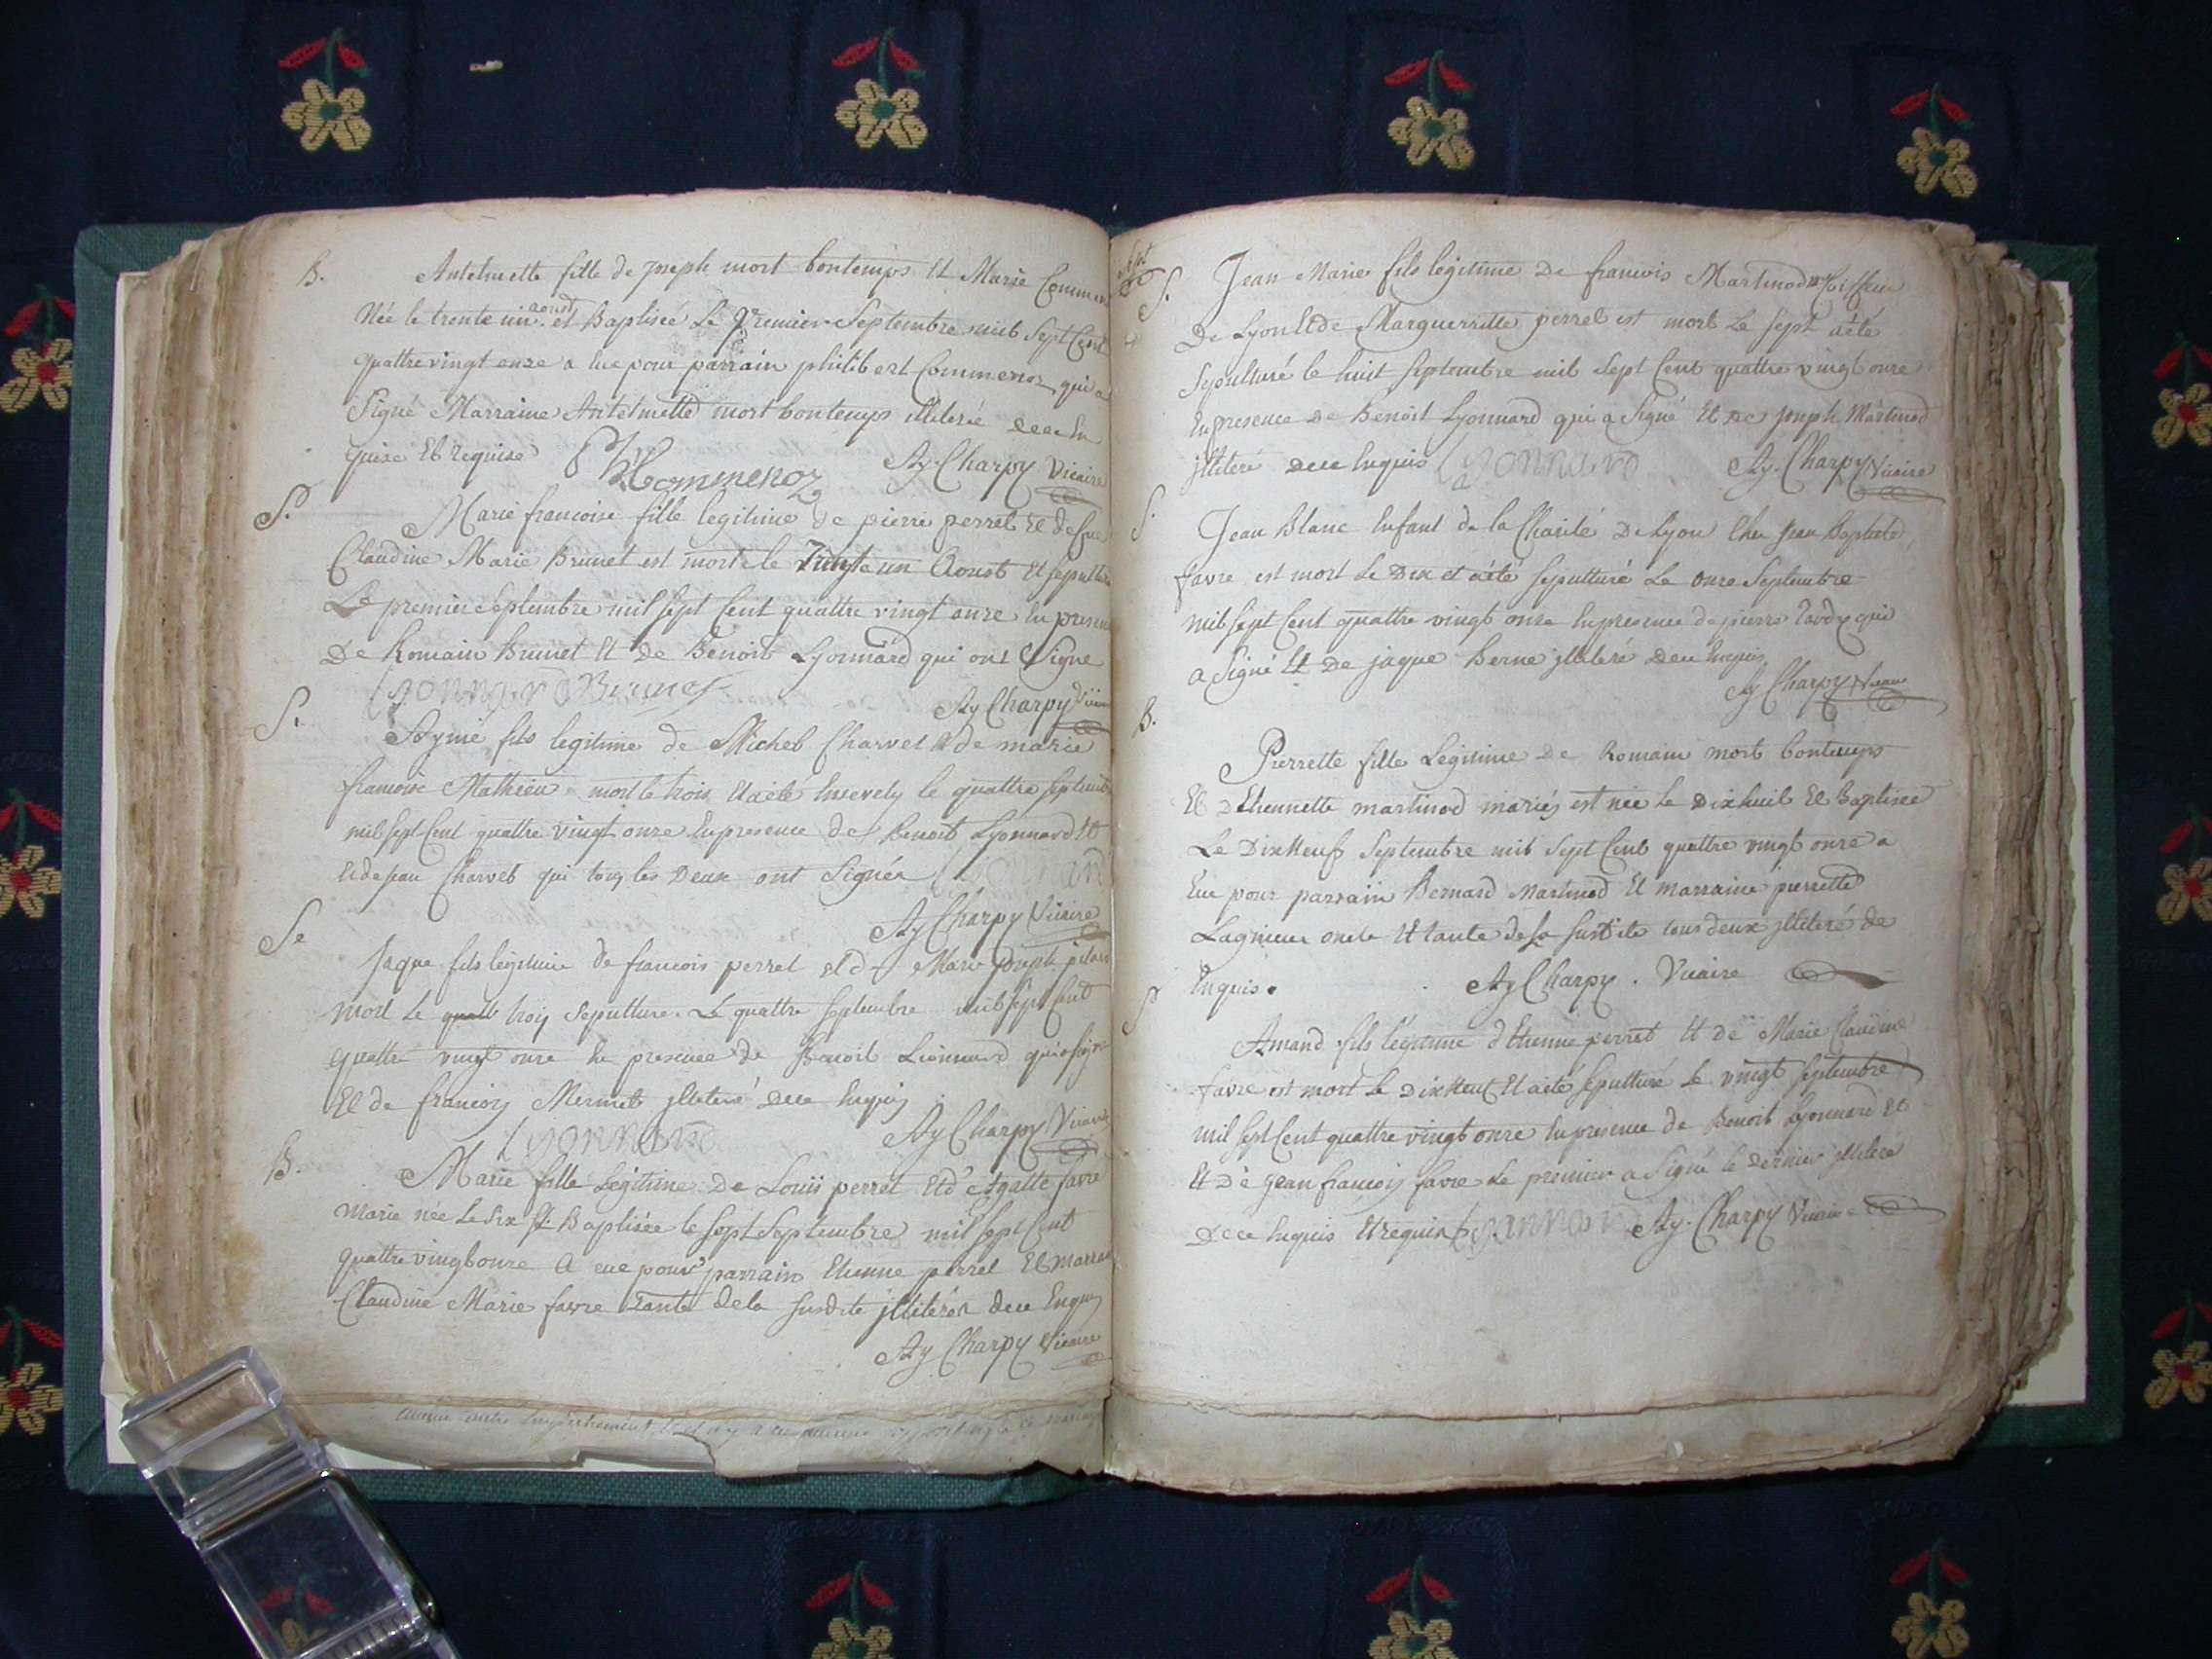 B. Antelmette fille de joseph mort bontemps Et Marie
Née le trente un aoust et Baptisée Le Premier Septembre mil Sept Cent
quattre vingt onze a Eue pour parrain philibert Commenoz qui a
Signé Marraine Antelmette mort bontemps illiterée
quise Et Requise PhCommenoz Ay Charpy Vicaire
S. Marie francoise fille legitime de pierre perret Et de feue
Claudine Marie Brunet est morte le Trente un Aoust Et
Le premier Septembre mil Sept Cent quattre vingt onze En
De Romain Brunet Et de Benoit Lyonnard qui ont Signé
Lyonnard Brunet Ay Charpy
S. Aymé fils legitime de Michel Charvet Et de marie
francoise Mathieu mort le trois Et a été Ensevely le quattre
mil Sept Cent quattre vingt onze En presence de Benoit Lyonnard Et
Charvet qui tous les Deux ont Signés
Ay Charpy Vicaire
Se Jaque fils legitime de francois perret et de Marie Joseph
mort Le trois Sepulture Le quattre Septembre mil Sept Cent
quattre vingt onze En presence de Benoit Lionnard
Et de francois Mermet jlliteré Enquis
Lyonnard Ay Charpy Vicaire
B. Marie fille Légitime De Louis perret Et d'Agatte favre
Marie née Le Six Et Baptisée le Sept Septembre mil Sept Cent
quattre vingt onze A eue pour parrain Etienne perret Et
Claudine Marie favre Tante de la Susdite jlliterés
Ay Charpy Vicaire
S. Jean Marie fils legitime De francois Martinod
De Lyon Et de Marguerritte perret est mort Le Sept a été
Sepulturé le huit Septembre mil Sept Cent quattre vingt onze
En presence De Benoit Lyonnard qui a Signé Et De joseph Martinod
jlliteré Enquis Lyonnard Ay. Charpy Vicaire
S. Jean Blanc Enfant de la Charité De Lyon Chez Jean Baptiste
favre est mort Le Dix et a été Sepulturé Le onze Septembre
mil Sept Cent quattre vingt onze En presence de pierre Tardy qui
a Signé Et De jaque Berne jlliteré Enquis
Ay Charpy Vicaire
B. Pierrette fille Légitime De Romain mort bontemps
Et D'Etiennette martinod mariés est née le Dixhuit Et Baptisée
Le Dix Neuf Septembre mil Sept Cent quattre vingt onze a
Eue pour parrain Bernard Martinod Et Marraine pierrette
Lagnieu oncle Et tante de la Susdite tous deux jlliteré de
Enquis. Ay Charpy. Vicaire
S Amand fils légitime d'Etienne perret Et de Marie Claudine
favre est mort Le Dix Neuf Et a été Sepulturé Le vingt Septembre
mil Sept Cent quattre vingt onze En presence de Benoit Lyonnard Et
Et De jean francois favre Le premier a Signé le dernier jlliteré
Enquis Et requis Lyonnard Ay. Charpy Vicaire